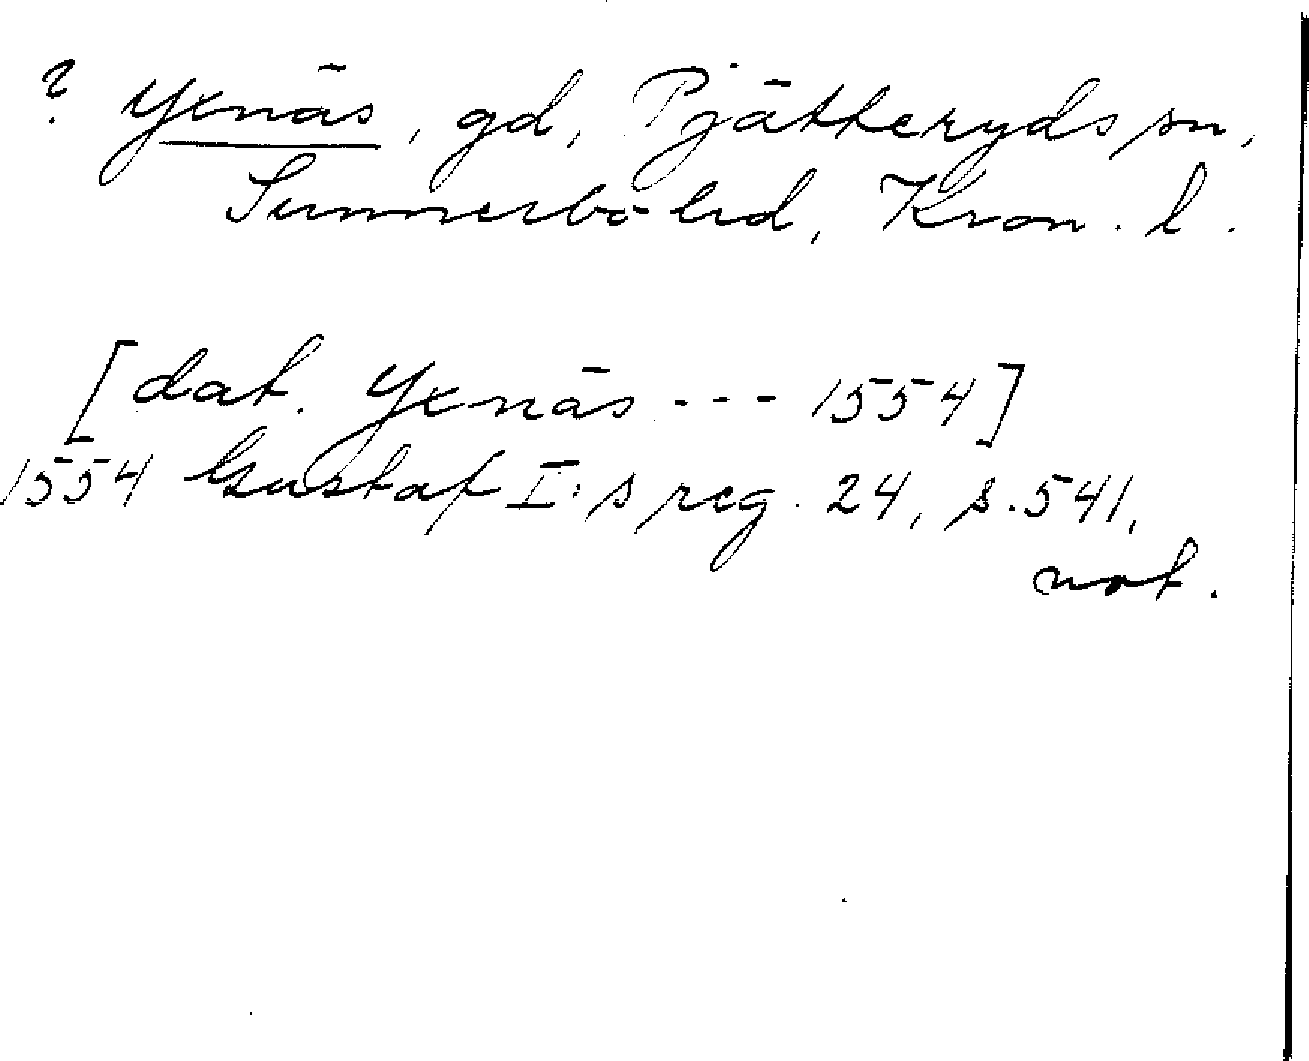 ? Yxnäs, gd, Pjätteryds sn,
Sunnerbo hd, Kron. l.
[dat. Yxnäs --- 1554]
1554 Gustaf I:s reg. 24, s. 541,
not.